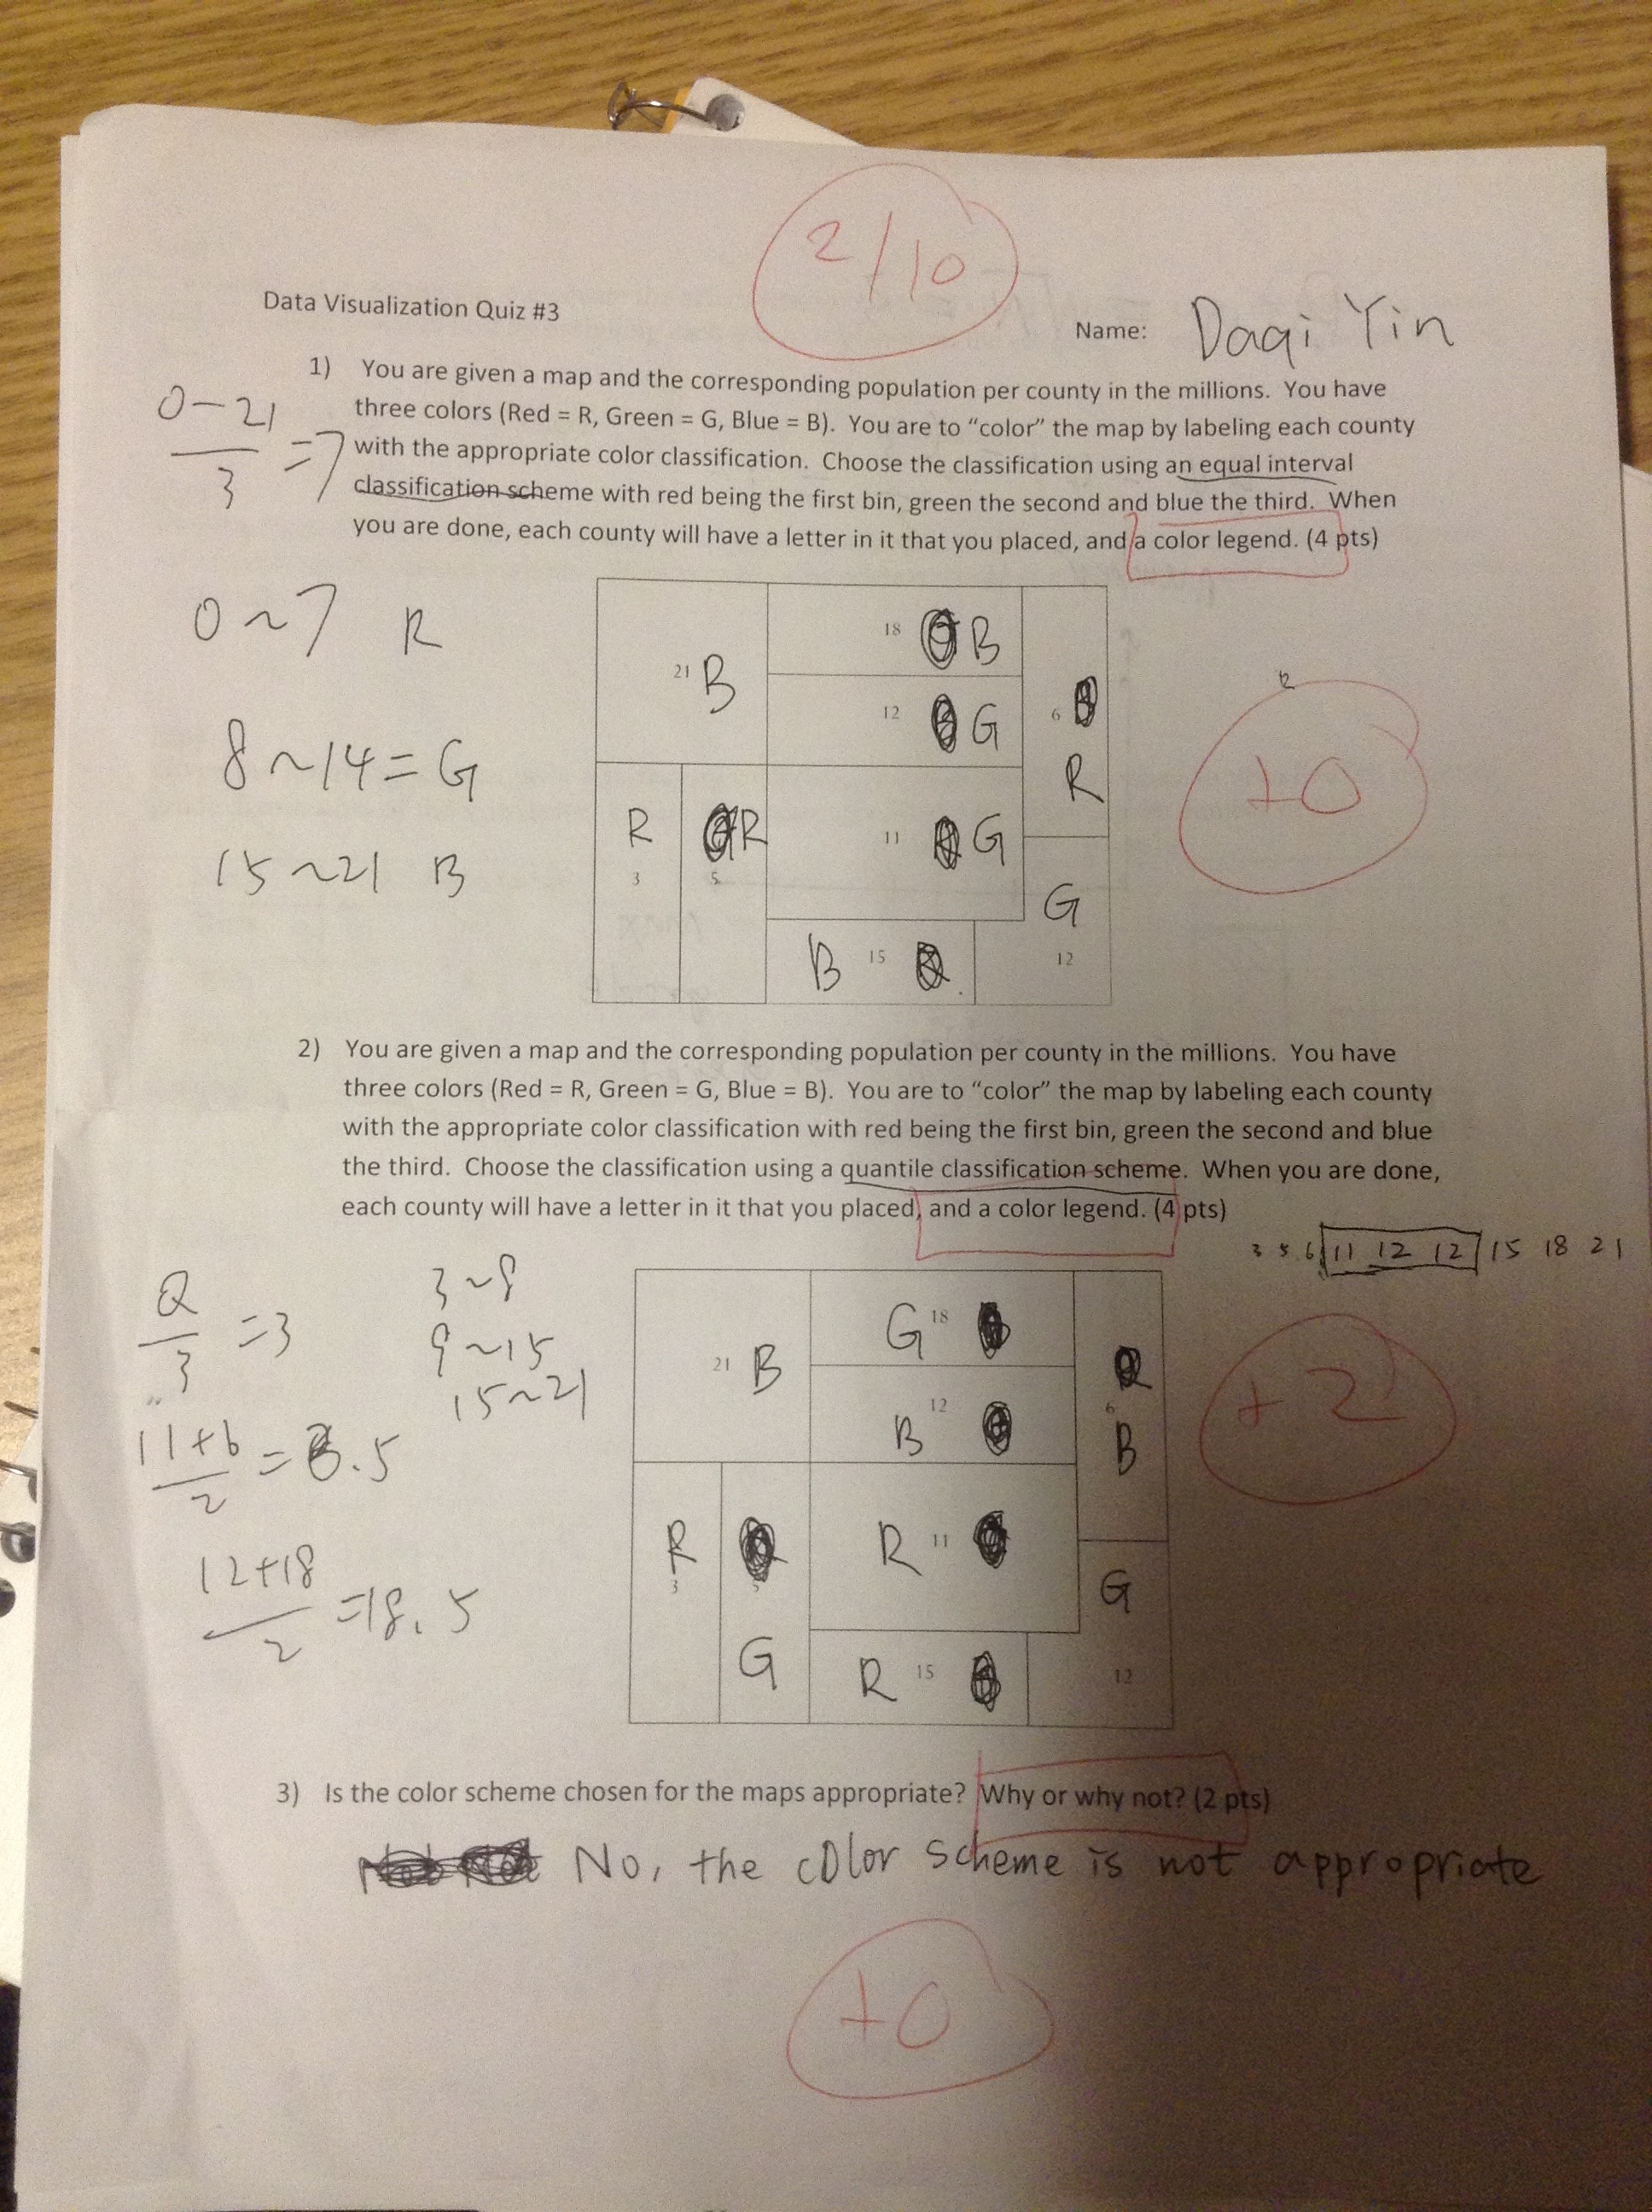 2/10
Data Visualization Quiz #3
Name: Daqi Yin
1) You are given a map and the corresponding population per county in the millions. You have
three colors (Red = R, Green = G, Blue = B). You are to “color” the map by labeling each county
with the appropriate color classification. Choose the classification using an equal interval
classification scheme with red being the first bin, green the second and blue the third. When
you are done, each county will have a letter in it that you placed, and a color legend. (4 pts)
0-21
3
=7
0~7 R
8~14=G
15~21 B
18 B
21 B
12 G
6
R
R
R
11 G
3
5
G
B 15
12
+0
2) You are given a map and the corresponding population per county in the millions. You have
three colors (Red = R, Green = G, Blue = B). You are to “color” the map by labeling each county
with the appropriate color classification with red being the first bin, green the second and blue
the third. Choose the classification using a quantile classification scheme. When you are done,
each county will have a letter in it that you placed, and a color legend. (4 pts)
3 5 6 11 12 12 15 18 21
3~8
=3
3
9~15
15~21
11+6
2
.5
12+18
2
=18.5
G 18
21 B
12
B
6
B
R
3
5
R 11
G
G
R 15
12
+2
3) Is the color scheme chosen for the maps appropriate? Why or why not? (2 pts)
No, the color scheme is not appropriate
+0